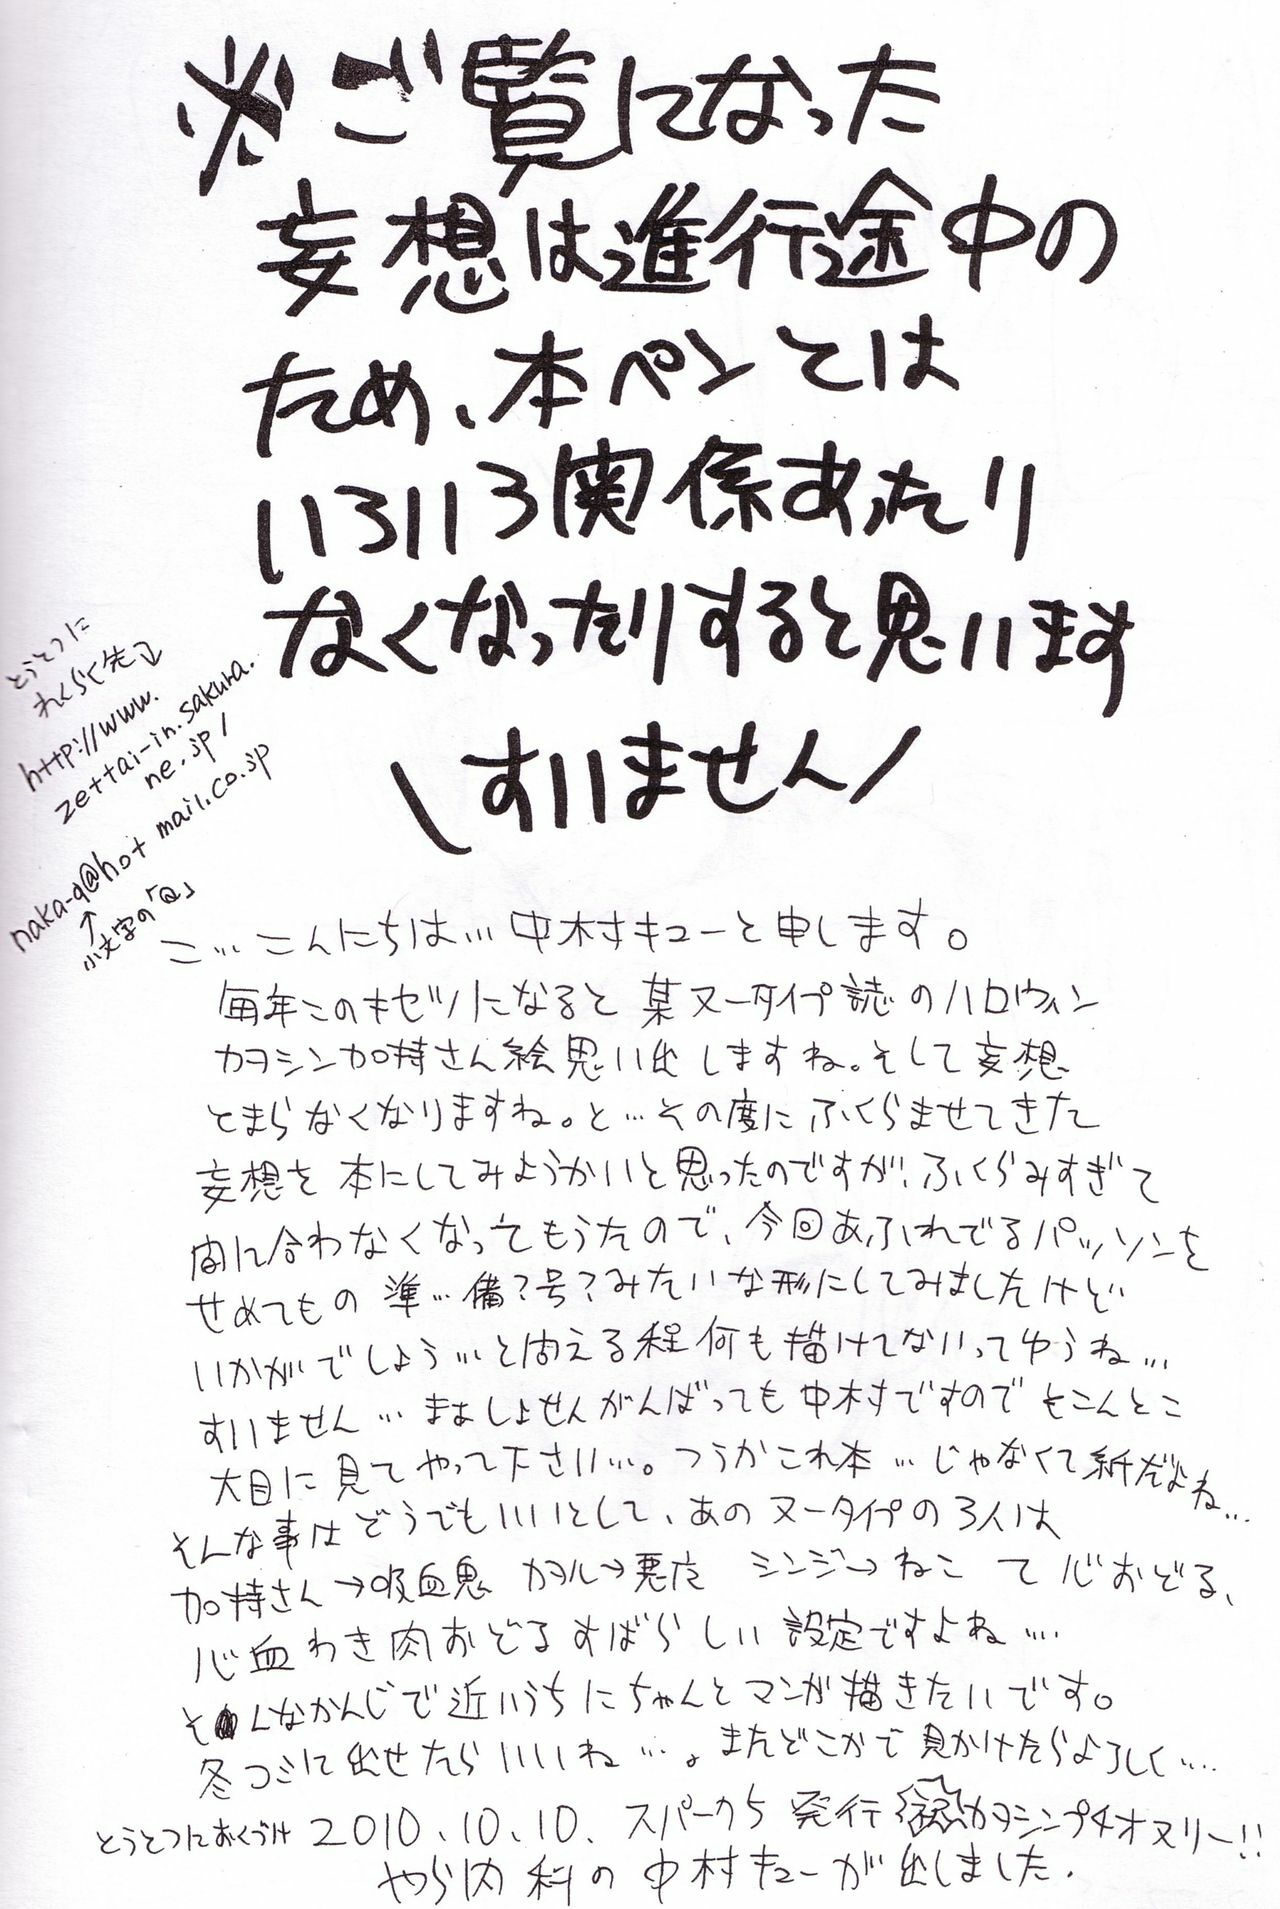 ※ご覧になった
妄想は進行途中の
ため、本ペンとは
いろいろ関係あったり
なくなったりすると思います
\すいません/
とうとつに
れんらく先↓
http://www.
zettai-in.sakura.
ne.jp/
naka-q@hotmail.co.jp
↑
小文字の「Q」
こ…こんにちは…中村キューと申します。
毎年このキセツになると某ヌータイプ誌のハロウィン
カヲシン加持さん絵思い出しますね。そして妄想
とまらなくなりますね。と…その度にふくらませてきた
妄想を本にしてみようかいと思ったのですが、ふくらみすぎて
間に合わなくなってもうたので、今回あふれでるパッソンを
せめてもの準…備?号?みたいな形にしてみましたけど
いかがでしょう…と問える程何も描けてないってゆうね…
すいません…まぁしょせんがんばっても中村ですのでそこんとこ
大目に見てやって下さい…。つうかこれ本…じゃなくて紙だよね…
そんな事はどうでもいいとして、あのヌータイプの3人は
加持さん→吸血鬼 カヲル→悪魔 シンジ→ねこ て心おどる、
心血わき肉おどるすばらしい設定ですよね…
そんなかんじで近いうちにちゃんとマンガ描きたいです。
冬コミに出せたらいいね…。またどこかで見かけたらよろしく…
とうとつにおくづけ 2010.10.10. スパーク5 発行 祝 カヲシンプチオンリー!!
やら内科の中村キューが出しました.